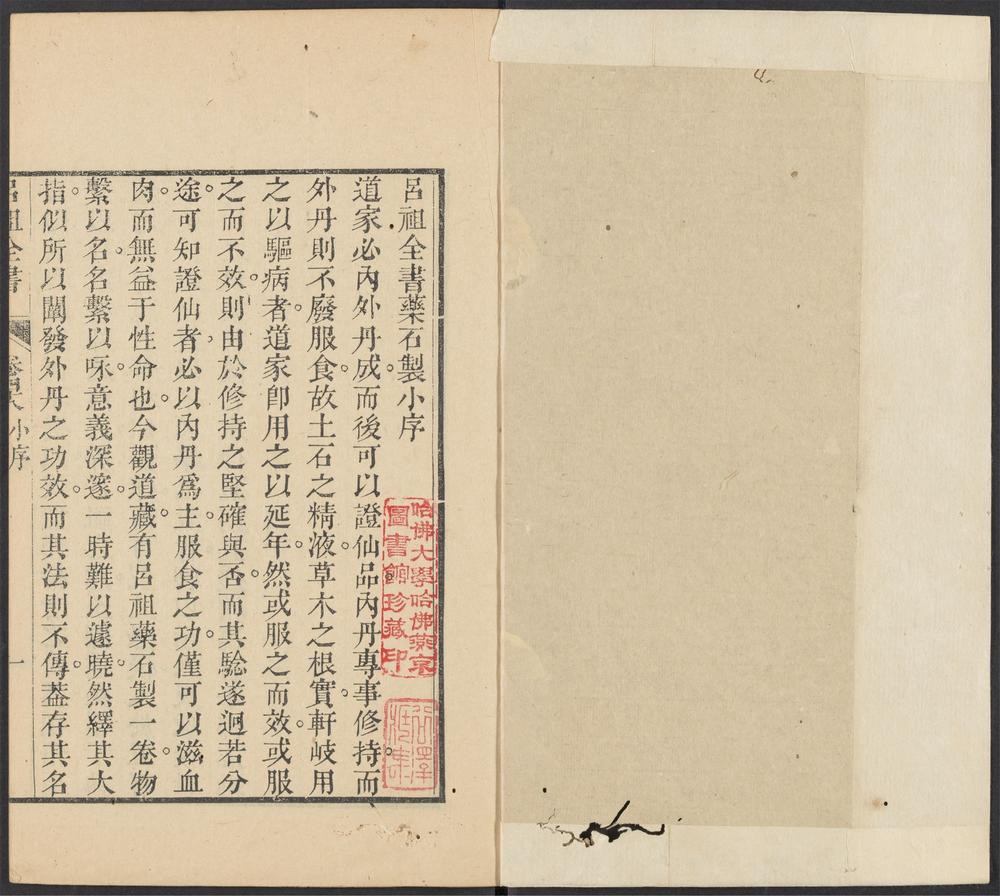 呂祖全書藥石製小序
道家必內外丹成而後可以證仙品內丹專事修持而
外丹則不廢服食故土石之精液草木之根實軒岐用
之以驅病者道家卽用之以延年然或服之而效或服
之而不效則由於修持之堅確與否而其騐遂迥若分
途可知證仙者必以內丹爲主服食之功僅可以滋血
肉而無益于性命也今觀道藏有呂祖藥石製一卷物
繫以名名繫以咏意義深邃一時難以遽曉然繹其大
指似所以闡發外丹之功效而其法則不傳葢存其名
呂祖全書
小序
一
哈佛大學哈佛燕京
圖書館珍藏印